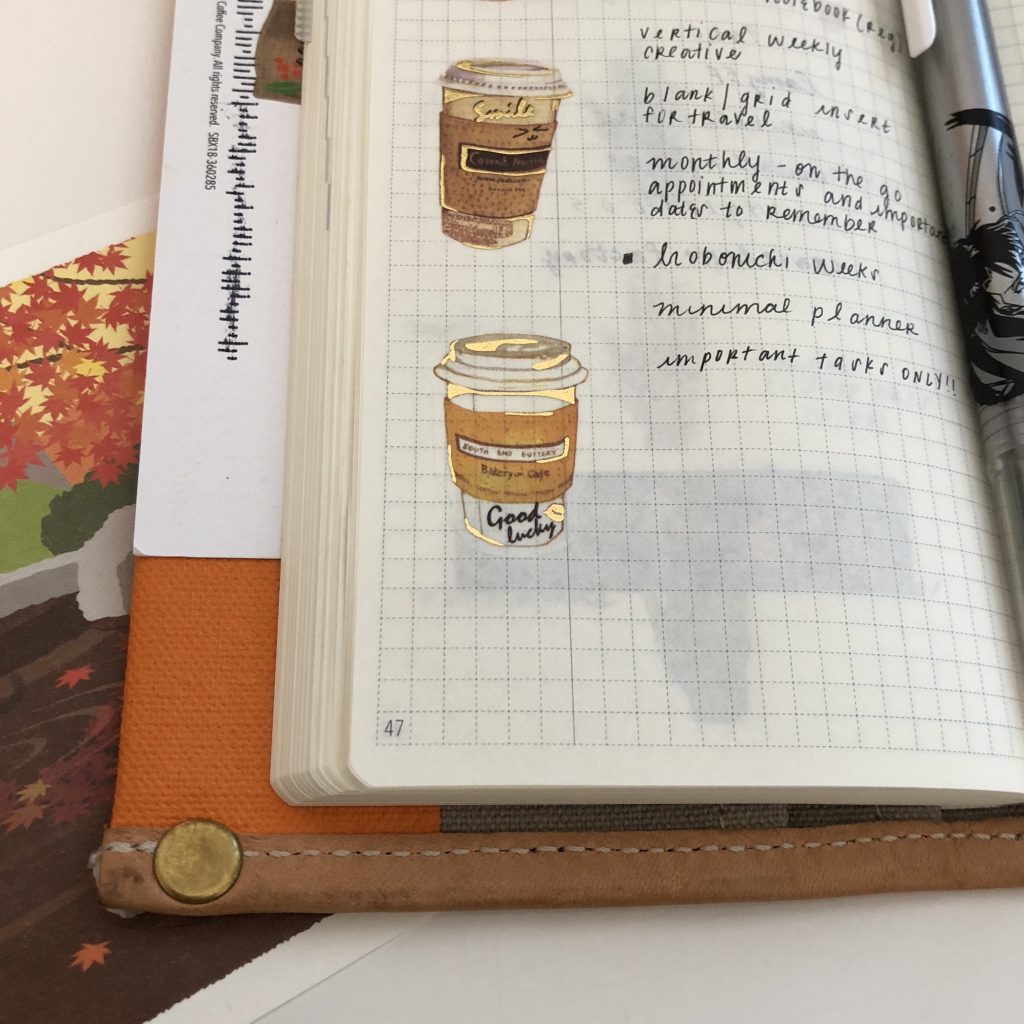 Coffee Company. All rights reserved. SBX18-360285
notebook (reg)
vertical weekly
creative
blank/grid insert
for travel
monthly - on the go
appointments and important
dates to remember
▪ hobonichi weeks
minimal planner
important tasks ONLY!!
Smile
SOUTH END BUTTERY
Bakery Cafe
Good
lucky
47